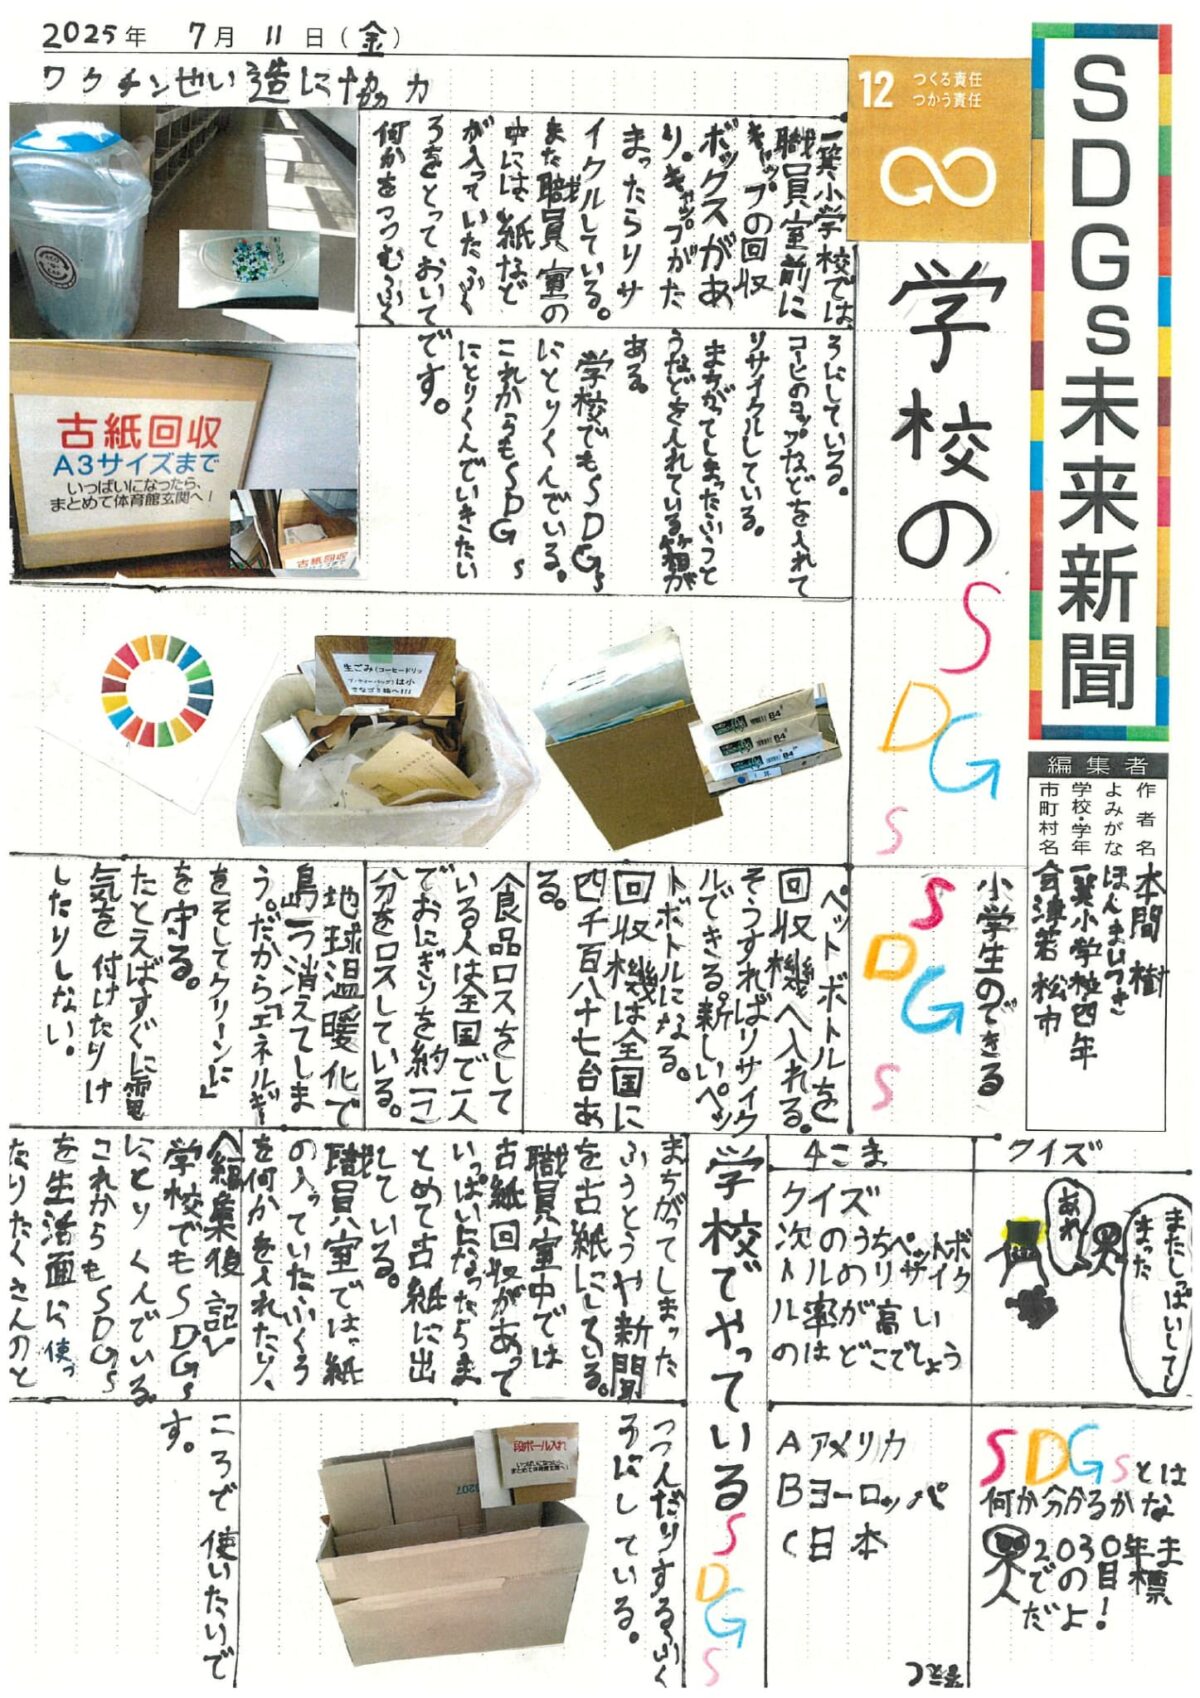 SDGs未来新聞
編集者
作者名 本間 樹
よみがな ほんまいつき
学校・学年 一箕小学校四年
市町村名 会津若松市
2025年 7月 11日(金)
12 つくる責任
つかう責任
学校のSDGs
ワクチンせい造に協力
一箕小学校では、
職員室前に
キャップの回収
ボックスがあ
り。キャップがた
まったらリサ
イクルしている。
また職員室の
中には紙など
が入っていたふく
ろをとっておいて
何かをつつむふく
ろにしている。
コーヒのコップなどを入れて
リサイクルしている。
まちがってしまったふうと
うなどを入れている箱が
ある。
学校でもSDGs
にとりくんでいる。
これからもSDGs
にとりくんでいきたい
です。
古紙回収
A3サイズまで
いっぱいになったら、
まとめて体育館玄関へ!
古紙回収
生ごみ(コーヒードリッ
プ・ティーバッグ)は小
さなゴミ箱へ!!!
B4
B4
B4
小学生のできる
SDGs
ペットボトルを
回収機へ入れる。
そうすればリサイク
ルできる。新しいペッ
トボトルになる。
回収機は全国に
四千百八十七台あ
る。
食品ロスをして
いる人は全国で一人
でおにぎりを約一こ
分をロスしている。
地球温暖化で
島一つ消えてしま
う。だから「エネルギー
をそしてクリーンに」
を守る。
たとえばすぐに電
気を付けたりけ
したりしない。
クイズ
またしっぱいして
しまった
あれ
SDGsとは
何か分かるかな
2030年ま
での目標
だよ!
4こま
クイズ
次のうちペットボ
トルのリサイク
ルの率が高い
のはどこでしょう
A アメリカ
B ヨーロッパ
C 日本
答えC
学校でやっているSDGs
まちがってしまった
ふうとうや新聞
を古紙にしている。
職員室中では
古紙回収があって
いっぱいになったらま
とめて古紙に出
している。
職員室では紙
の入っていたふくろ
を何かを入れたり、
つつんだりするふく
ろにしている。
段ボール入れ
いっぱいになったら、
まとめて体育館玄関へ!
<編集後記>
学校でもSDGs
にとりくんでいる
これからもSDGs
を生活面に使っ
たりたくさんのと
ころで使いたいで
す。